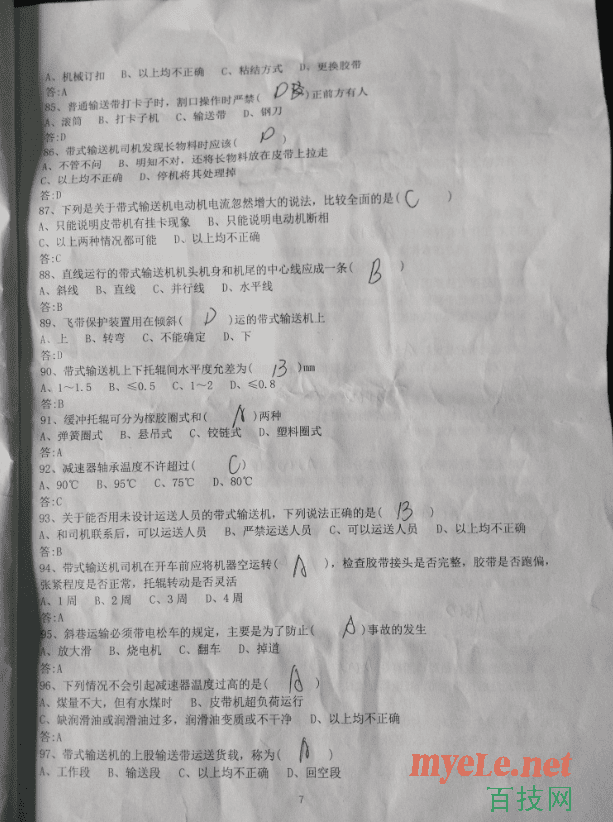 A、机械订扣 B、以上均不正确 C、粘结方式 D、更换胶带
答:A
85、普通输送带打卡子时，割口操作时严禁( D )正前方有人
A、滚筒 B、打卡子机 C、输送带 D、钢刀
答:D
86、带式输送机司机发现长物料时应该( D )
A、不管不问 B、明知不对，还将长物料放在皮带上拉走
C、以上均不正确 D、停机将其处理掉
答:D
87、下列是关于带式输送机电动机电流忽然增大的说法，比较全面的是( C )
A、只能说明皮带机有挂卡现象 B、只能说明电动机断相
C、以上两种情况都可能 D、以上均不正确
答:C
88、直线运行的带式输送机机头机身和机尾的中心线应成一条( B )
A、斜线 B、直线 C、并行线 D、水平线
答:B
89、飞带保护装置用在倾斜( D )运的带式输送机上
A、上 B、转弯 C、不能确定 D、下
答:D
90、带式输送机上下托辊间水平度允差为( B )mm
A、1～1.5 B、≤0.5 C、1～2 D、≤0.8
答:B
91、缓冲托辊可分为橡胶圈式和( A )两种
A、弹簧圈式 B、悬吊式 C、铰链式 D、塑料圈式
答:A
92、减速器轴承温度不许超过( C )
A、90℃ B、95℃ C、75℃ D、80℃
答:C
93、关于能否用未设计运送人员的带式输送机，下列说法正确的是( B )
A、和司机联系后，可以运送人员 B、严禁运送人员 C、可以运送人员 D、以上均不正确
答:B
94、带式输送机司机在开车前应将机器空运转( A )，检查胶带接头是否完整，胶带是否跑偏，
张紧程度是否正常，托辊转动是否灵活
A、1周 B、2周 C、3周 D、4周
答:A
95、斜巷运输必须带电松车的规定，主要是为了防止( A )事故的发生
A、放大滑 B、烧电机 C、翻车 D、掉道
答:A
96、下列情况不会引起减速器温度过高的是( A )
A、煤量不大，但有水煤时 B、皮带机超负荷运行
C、缺润滑油或润滑油过多，润滑油变质或不干净 D、以上均不正确
答:A
97、带式输送机的上股输送带运送货载，称为( A )
A、工作段 B、输送段 C、以上均不正确 D、回空段
7
myeLe.net
百技网